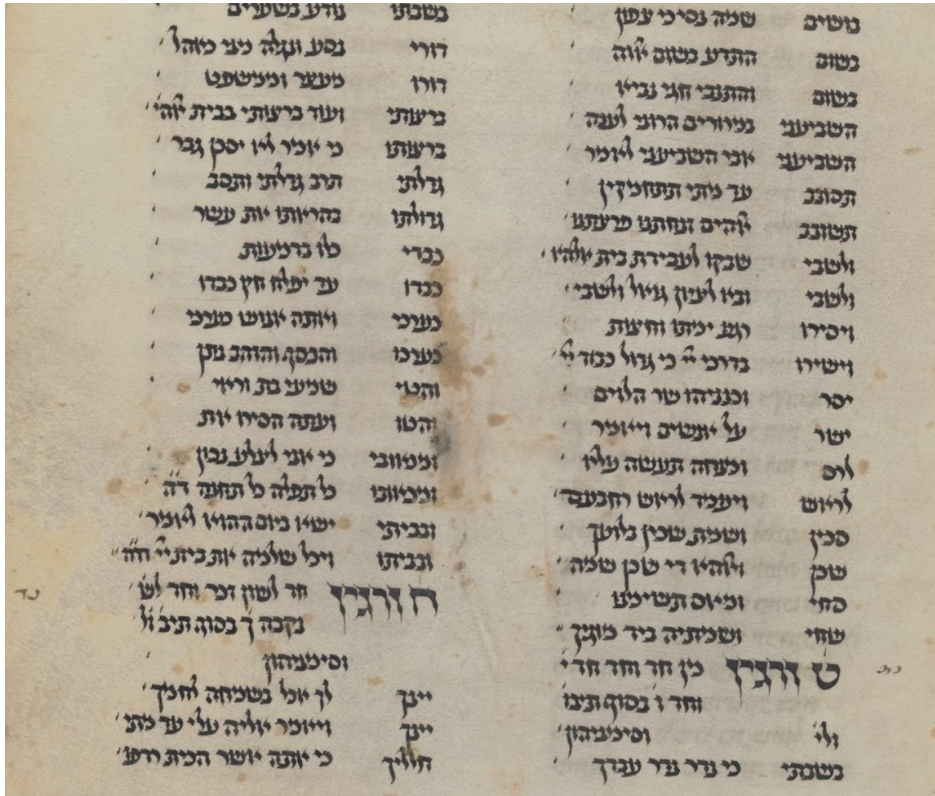 בושים שמה נסיכי צפון
בשום התדע בשום אלוה
בשום והתנבי חגי נביאו
השביעני במרורים הרוני לענה
השביעני אני השביעני לאמר
תסובב עד מתי תתחמקין
תשובב אלהים זנחתנו פרצתנו
ולשבי שבקו לעבידת בית אלהא
ולשבי ובא לציון גואל ולשבי
ויסירו רגע ימתו וחצות
וישירו בדרכי יי כי גדול כבוד יי
יסר וכנניהו שר הלוים
ישר על אנשים ויאמר
לרס ומנחה תעשה עליו
לראש ויעמד לראש רחבעם
סכין ושמת שכין בלועך
שכן ואלהא די שכן שמה
סחי ומאוס תשימנו
שחי ושמתיה ביד מוגיך
ט זוגין מן חד וחד חד י
וחד ו בסוף תיבו
ולי וסימניהון
בשבתי כי נדר נדר עבדך
בשבתו נודע בשערים
דורי נסע ונגלה מני כאהל
דורו מעצר וממשפט
ברצותי ועוד ברצותי בבית אלהי
ברצותו כי אמר לא יסכן גבר
גדלתי תרב גדלתי ותסב
גדולתו בהראותו את עשר
כבדי כלו בדמעות
כבדו עד יפלח חץ כבדו
כערכי ואתה אנוש כערכי
כערכו והכסף והזהב נתן
והטי שמעי בת וראי
והטו ועתה הסירו את
ומכאובי כי אני לצלע נכון
ומכאובו כל תפלה כל תחנה
ובביתי ישא ביום ההוא לאמר
ובביתו ויכל שלמה את בית יי
ח זוגין חד לשון דכר וחד לש
נקבה ך בסוף תיב
וסימניהון
יינך לך אכל בשמחה לחמך
יינך ויאמר אליה עלי עד מתי
חלליך כי אתה אשר הכית רדפו